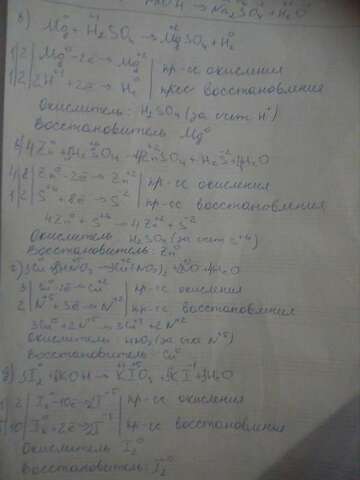 Na₂SO₄ + H₂O
Mg⁰ + H₂SO₄ → Mg⁺²SO₄ + H₂⁰
1|2| Mg⁰ - 2ē → Mg⁺² | пр-сс окисления
1|2| 2H⁺¹ + 2ē → H₂⁰ | прсс восстановления
Окислитель: H₂SO₄ (за счет H⁺)
Восстановитель Mg⁰
4Zn⁰ + 5H₂SO₄ → 4ZnSO₄ + H₂S⁻² + 4H₂O
4|2| Zn⁰ - 2ē → Zn⁺² | пр-сс окисления
1|2| S⁺⁶ + 8ē → S⁻² | пр-сс восстановления
4Zn⁰ + S⁺⁶ → 4Zn⁺² + S⁻²
Окислитель H₂SO₄ (за счет S⁺⁶)
Восстановитель: Zn⁰
г) 3Cu + 8HNO₃ → 3Cu(NO₃)₂ + 2NO + 4H₂O
3| Cu⁰ - 2ē → Cu⁺² | пр-сс окисления
2| N⁺⁵ + 3ē → N⁺² | пр-сс восстановления
3Cu⁰ + 2N⁺⁵ → 3Cu⁺² + 2N⁺²
Окислитель HNO₃ (за счет N⁺⁵)
Восстановитель: Cu⁰
I₂⁰ + KOH → KIO₃ + 5KI⁻¹ + 3H₂O
1|2| I₂⁰ - 10ē → 2I⁺⁵ | пр-сс окисления
5|10| I₂⁰ + 2ē → 2I⁻¹ | пр-сс восстановления
Окислитель I₂⁰
Восстановитель: I₂⁰